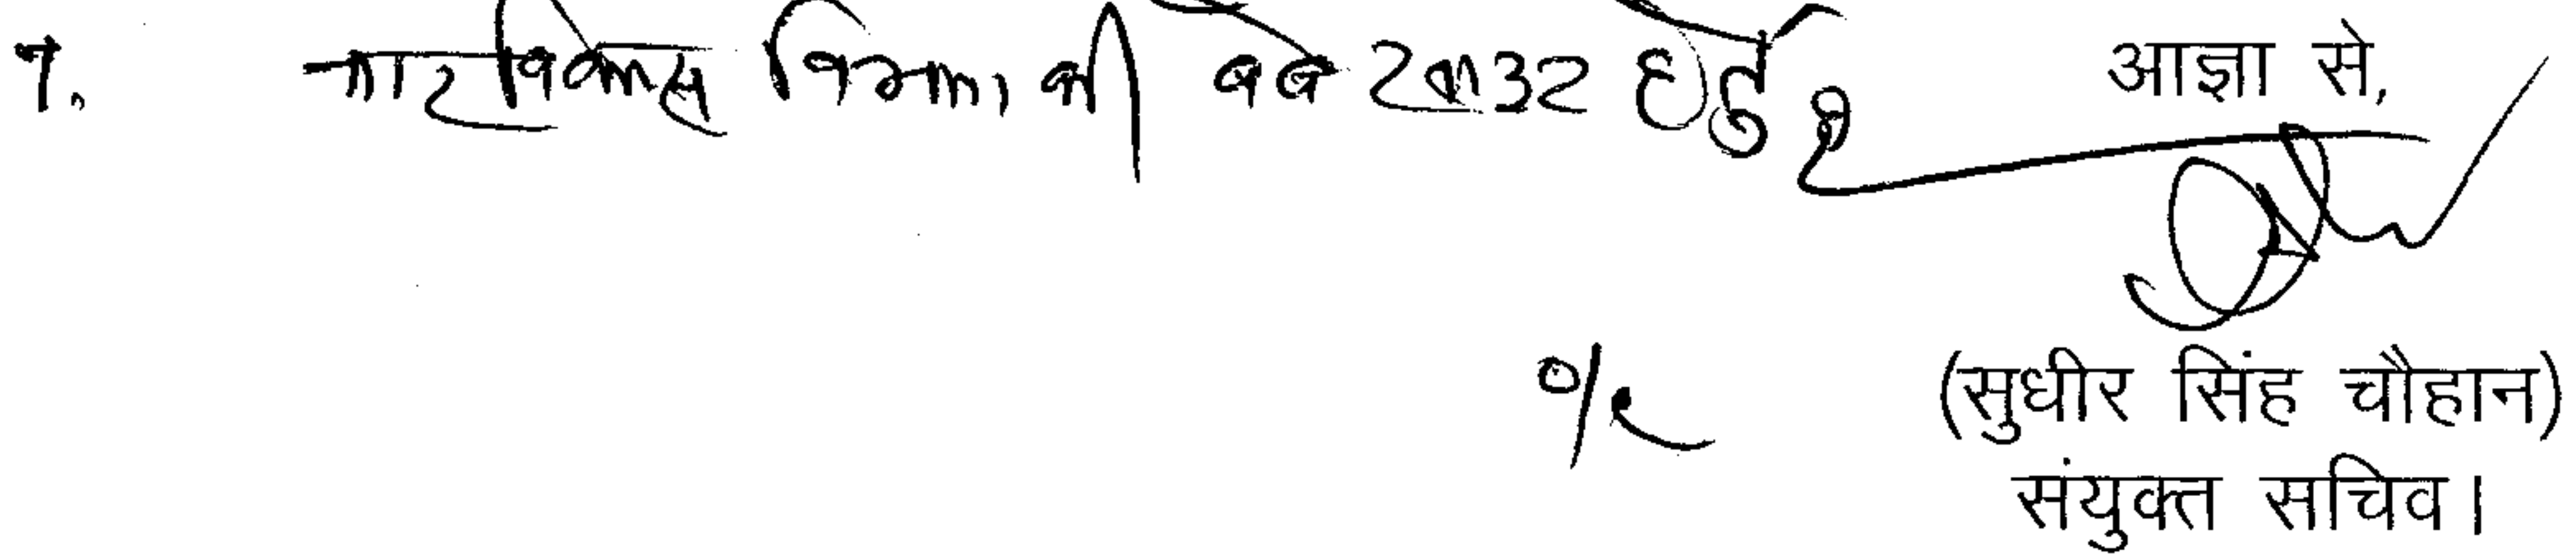 7. नगर विकास विभाग की वेबसाइट हेतु
आज्ञा से,
(सुधीर सिंह चौहान)
संयुक्त सचिव।